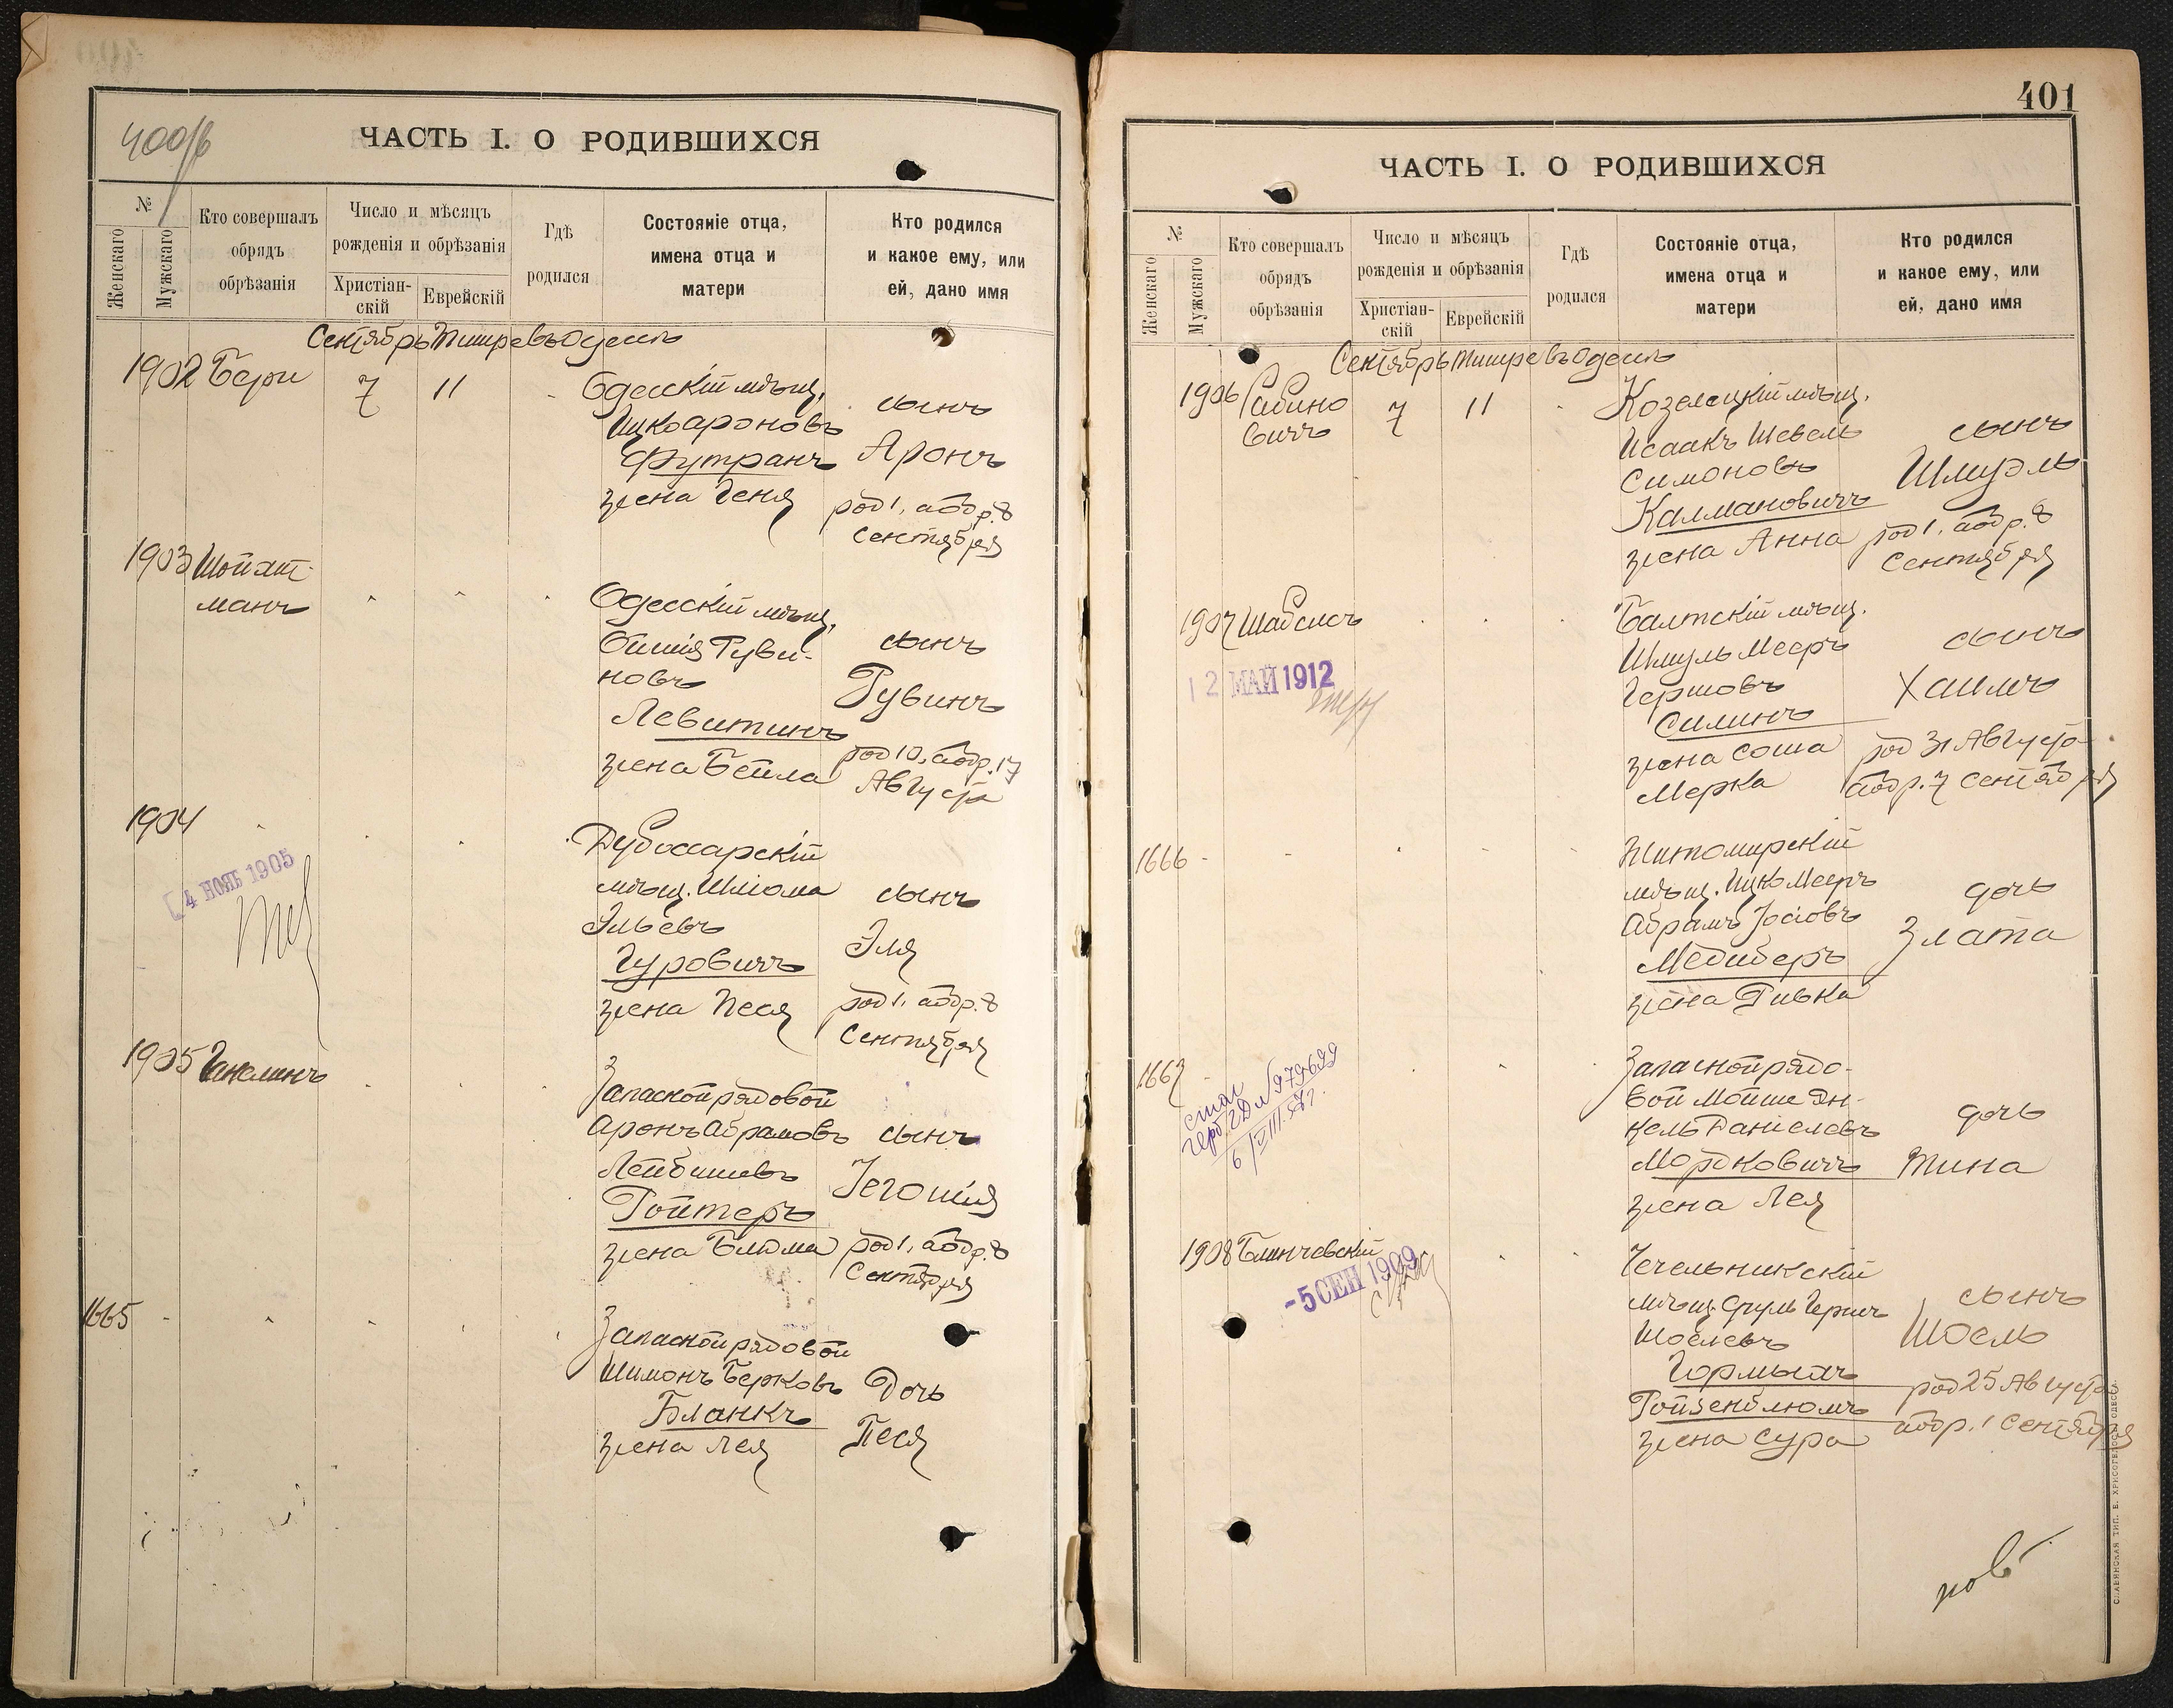 400/б
ЧАСТЬ I. О РОДИВШИХСЯ
№
Женскаго
Мужскаго
Кто совершалъ
обрядъ
обрѣзанія
Число и мѣсяцъ
рожденія и обрѣзанія
Христіан-
скій
Еврейскій
Гдѣ
родился
Состояніе отца,
имена отца и
матери
Кто родился
и какое ему, или
ей, дано имя
Сентябрь Тишре въ Одессѣ
1902 Бери 7 11
Одесскій мѣщ.
Ицко Ароновъ
Футранъ
жена Геня
сынъ
Аронъ
род 1, аобр. 8
Сентября
1903 Шойхт-
манъ
Одесскій мѣщ.
Рувиновъ
Левитинъ
жена Бейла
сынъ
Рувинъ
род 10, аобр. 17
Августа
1904
4 НОЯБ 1905
Дубоссарскій
мѣщ. Шлiома
Эльевъ
Гуровичъ
жена Песя
сынъ
Эля
род 1, аобр. 8
Сентября
1905 Ганелинъ
Запасной рядовой
Аронъ Абрамовъ
Лейбишевъ
Ройтеръ
жена Блюма
сынъ
Іегошія
род 1, аобр. 8
Сентября
1665
Запасной рядовой
Шимонъ Берковъ
Бланкъ
жена Лея
Дочь
Песя
401
ЧАСТЬ I. О РОДИВШИХСЯ
№
Женскаго
Мужскаго
Кто совершалъ
обрядъ
обрѣзанія
Число и мѣсяцъ
рожденія и обрѣзанія
Христіан-
скій
Еврейскій
Гдѣ
родился
Состояніе отца,
имена отца и
матери
Кто родился
и какое ему, или
ей, дано имя
Сентябрь Тишре въ Одессѣ
1906 Рабино
вичъ 7 11
Козелецкій мѣщ.
Исаакъ Шевель
Симоновъ
Калмановичъ
жена Анна
сынъ
Шмуэль
род 1, аобр. 8
Сентября
1907 Шабсисъ
12 МАЙ 1912
Балтскій мѣщ.
Шмуль Мееръ
Гершовъ
Силинъ
жена Соша
Мерка
сынъ
Хаимъ
род 31 Августа
аобр. 7 Сентября
1666
Житомирскій
мѣщ. Ицко Мееръ
Абрамъ Іосіовъ
Медиберъ
жена Ривка
дочь
Злата
1667
6/VIII 57 г.
Запасной рядо-
вой Мойше Ян-
кель Даніелевъ
Мордковичъ
жена Лея
дочь
Тина
1908 Блинчевскій
-5 СЕН 1909
Чечельникскій
мѣщ. Сруль Гершъ
Шоелевъ
Гормыхъ
Ройзенблюмъ
жена Сура
сынъ
Шоель
род 25 Августа
аобр. 1 Сентября
СЛАВЯНСКАЯ ТИП. Е. ХРИСОГЕЛОСЪ, ОДЕССА.